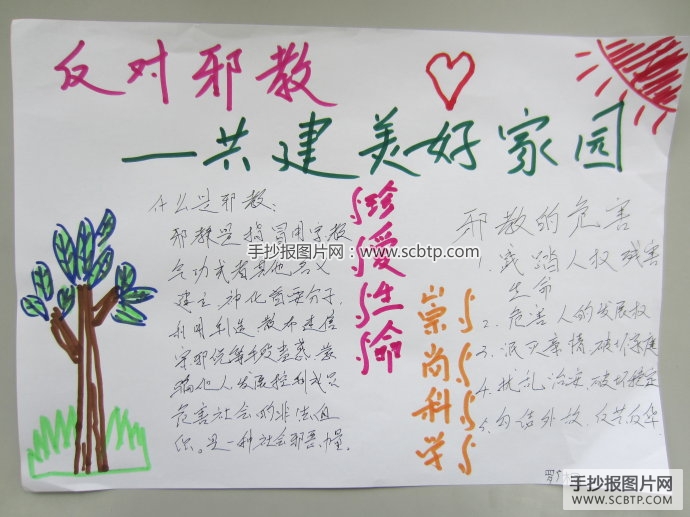 反对邪教
一共建美好家园
什么是邪教:
邪教是指冒用宗教
气功或者其他名义
建立,神化首要分子,
利用制造、散布迷信
邪说等手段蛊惑、蒙
骗他人发展控制成员
危害社会的非法组
织。是一种社会邪恶力量。
珍爱生命
崇尚科学
邪教的危害
1. 践踏人权 残害
生命
2. 危害人的发展权
3. 泯灭亲情,破坏家庭
4. 扰乱治安 破坏稳定
5. 勾结外敌,反共反华
手抄报图片网 - www.scbtp.com
手抄报图片网
WWW.SCBTP.COM